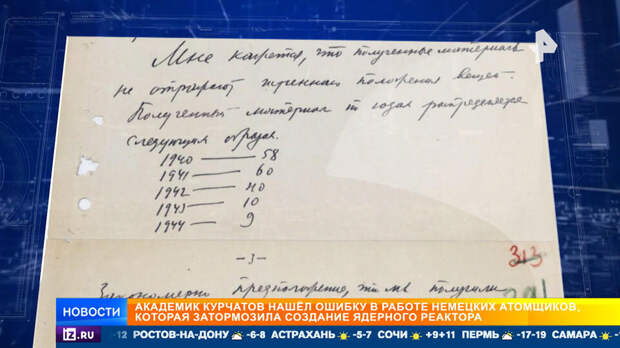 Мне кажется, что полученные материалы
не отражают истинного положения вещей.
Полученный материал по годам распределяется
следующим образом.
1940 — 58
1941 — 60
1942 — 40
1943 — 10
1944 — 9
– 3 –
313
291
Закономерно предположение, что мы получили
НОВОСТИ
АКАДЕМИК КУРЧАТОВ НАШЁЛ ОШИБКУ В РАБОТЕ НЕМЕЦКИХ АТОМЩИКОВ,
КОТОРАЯ ЗАТОРМОЗИЛА СОЗДАНИЕ ЯДЕРНОГО РЕАКТОРА
IZ.RU
-12 РОСТОВ-НА-ДОНУ -6-8 АСТРАХАНЬ -5-7 СОЧИ +9+11 ПЕРМЬ -17-19 САМАРА -